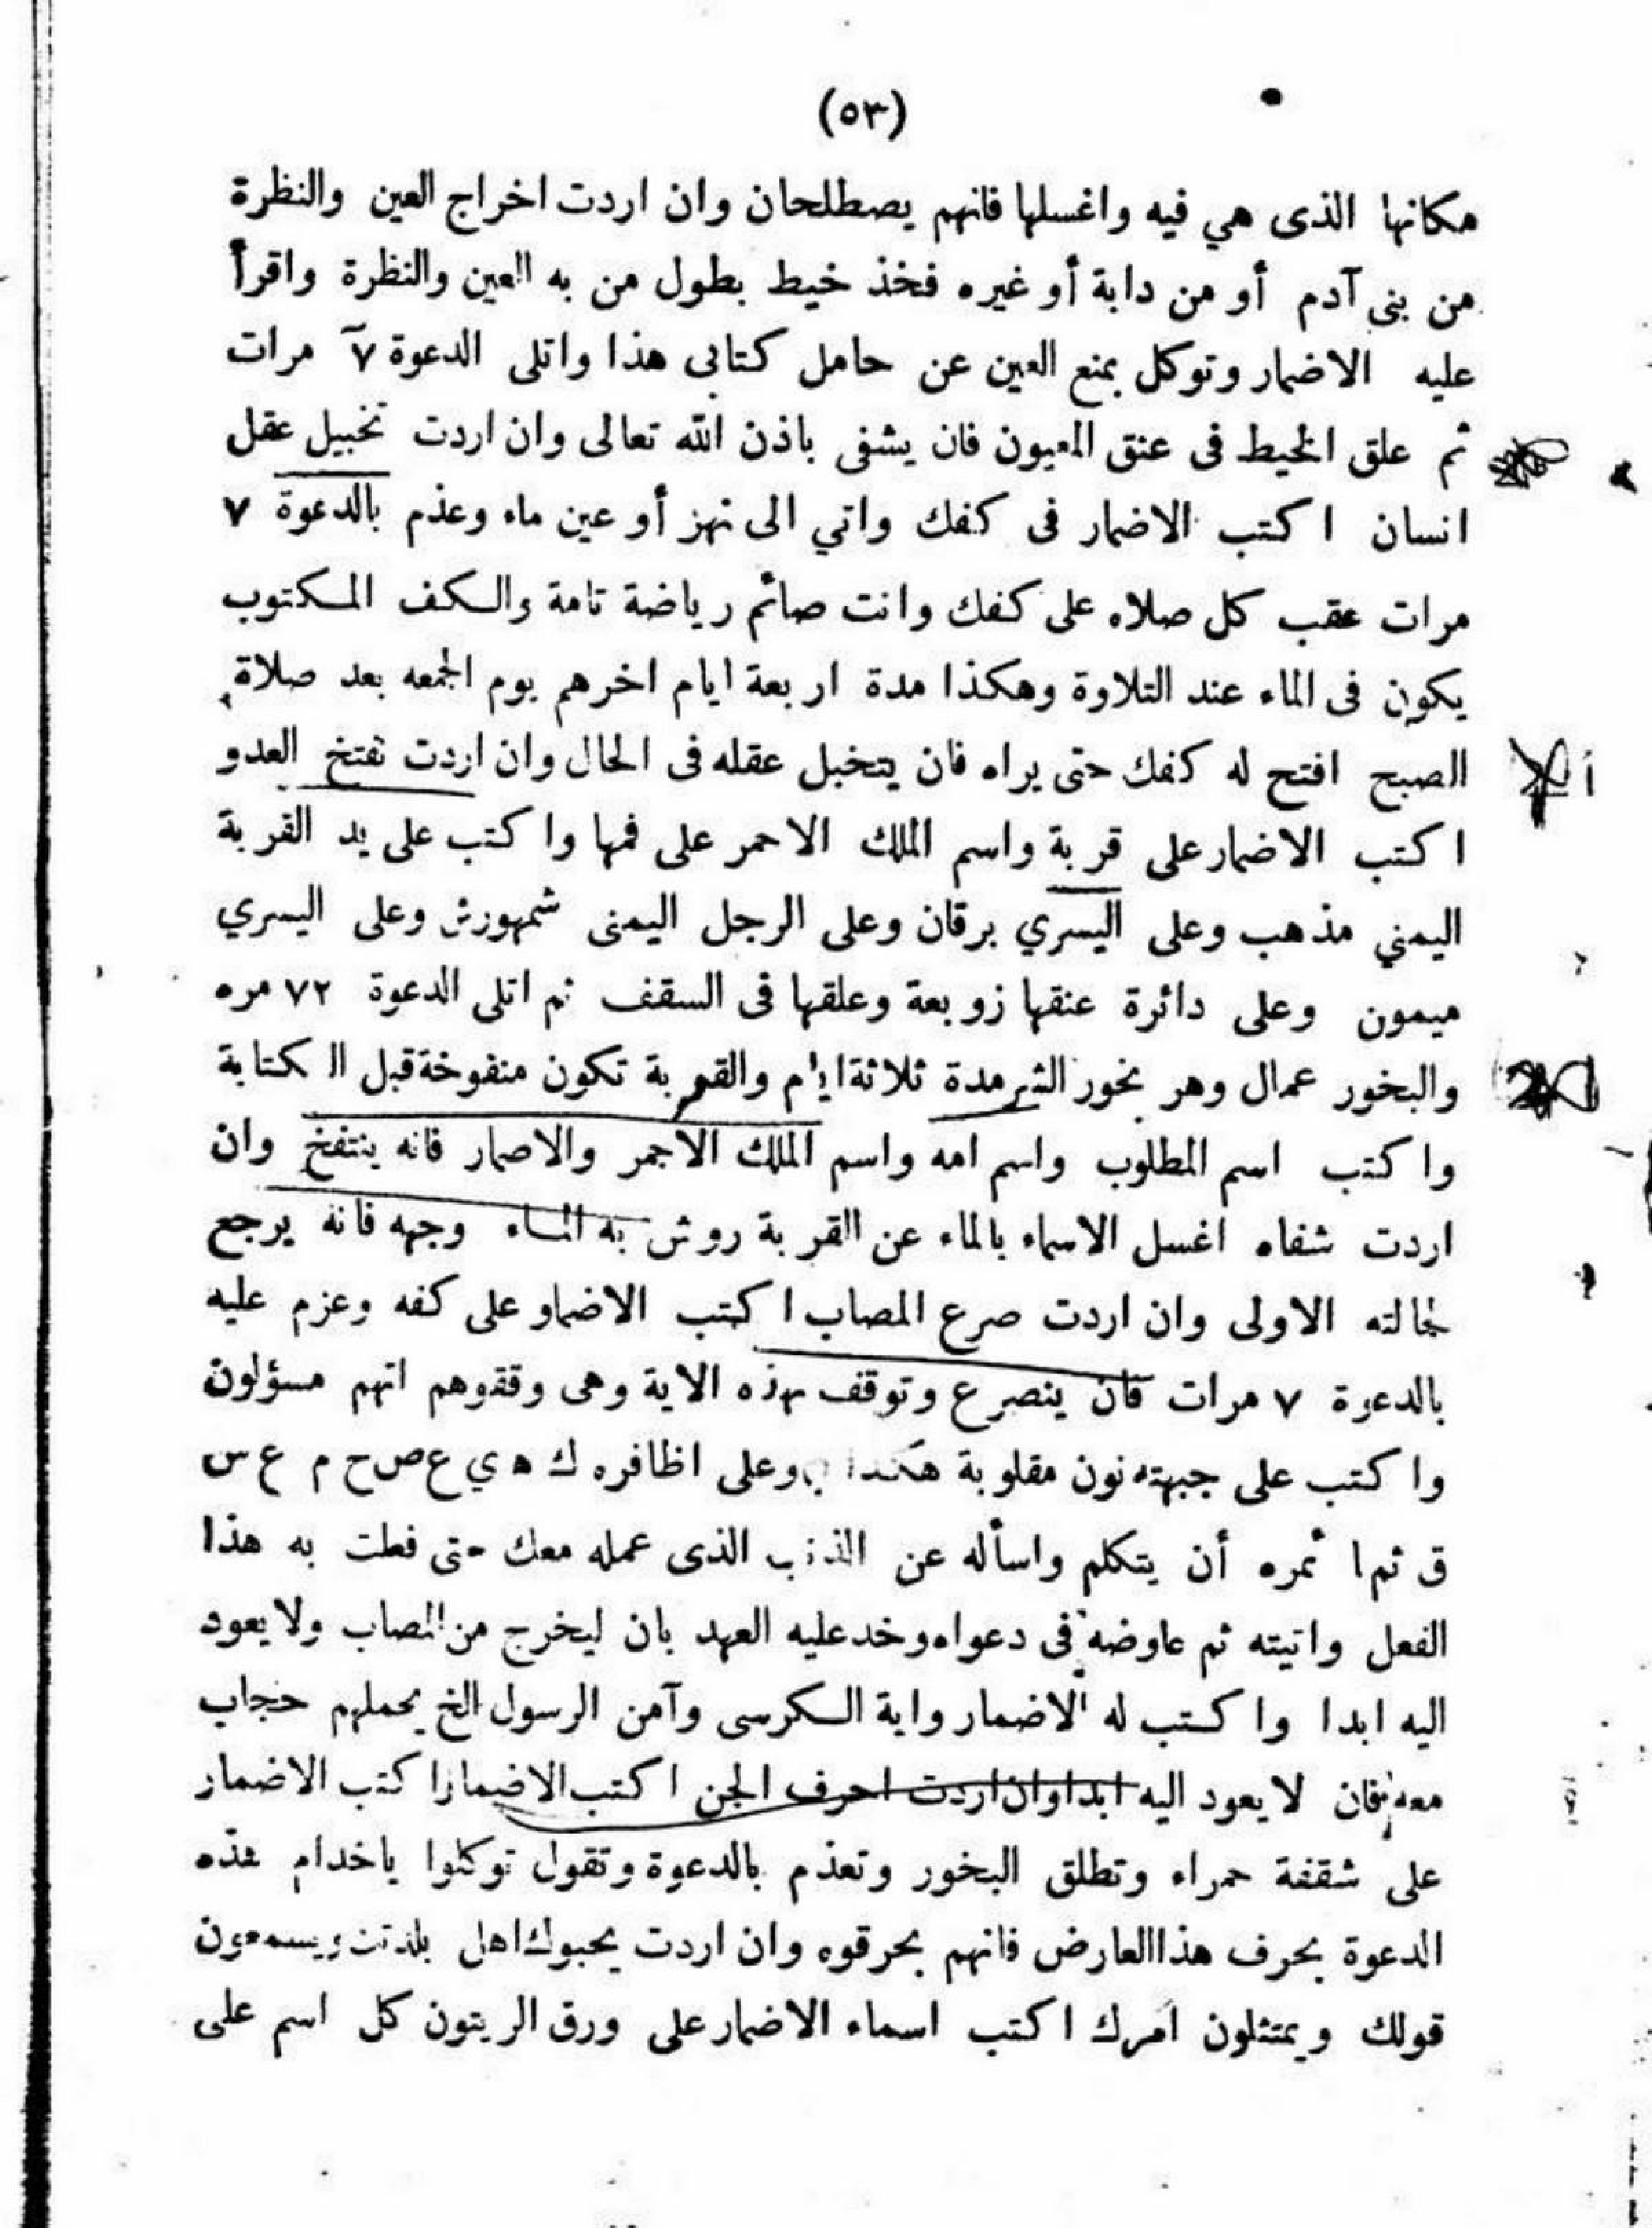 (٥٣)
مكانها الذى هي فيه واغسلها فانهم يصطلحان وان اردت اخراج العين والنظرة
من بنى آدم أو من دابة أو غيره فخذ خيط بطول من به العين والنظرة واقرأ
عليه الاضمار وتوكل بمنع العين عن حامل كتابى هذا واتلى الدعوة ٧ مرات
ثم علق الخيط فى عنق المعيون فان يشفى باذن الله تعالى وان اردت تخبيل عقل
انسان اكتب الاضمار فى كفك واتي الى نهز أو عين ماء وعذم بالدعوة ٧
مرات عقب كل صلاه على كفك وانت صائم رياضة تامة والكف المكتوب
يكون فى الماء عند التلاوة وهكذا مدة اربعة ايام اخرهم يوم الجمعه بعد صلاة
الصبح افتح له كفك حتى يراه فان يتخبل عقله فى الحال وان اردت تفتخ العدو
اكتب الاضمار على قربة واسم الملك الاحمر على فمها واكتب على يد القربة
اليمني مذهب وعلى اليسري برقان وعلى الرجل اليمنى شمهورش وعلى اليسري
ميمون وعلى دائرة عنقها زوبعة وعلقها فى السقف ثم اتلى الدعوة ٧٢ مره
والبخور عمال وهر بخور الشر مدة ثلاثة ايام والقربة تكون منفوخة قبل الكتابة
واكتب اسم المطلوب واسم امه واسم الملك الاحمر والاصمار فانه ينتفخ وان
اردت شفاه اغسل الاسماء بالماء عن القربة روش به الماء وجهه فانه يرجع
لحالته الاولى وان اردت صرع المصاب اكتب الاضماو على كفه وعزم عليه
بالدعوة ٧ مرات فان ينصرع وتوقف بهذه الاية وهى وقفوهم انهم مسؤلون
واكتب على جبهته نون مقلوبة هكذا وعلى اظافره ك ه ي ع ص ح م ع س
ق ثم ا ئمره أن يتكلم واسأله عن الذنب الذى عمله معك حتى فعلت به هذا
الفعل واتيته ثم عاوضه فى دعواه وخد عليه العهد بان ليخرج من المصاب ولا يعود
اليه ابدا واكتب له الاضمار واية الكرسى وآمن الرسول الخ يحملهم حجاب
معه فان لا يعود اليه ابدا وان اردت احرف الجن اكتب الاضمارا كتب الاضمار
على شقفة حمراء وتطلق البخور وتعذم بالدعوة وتقول توكلوا ياخدام هذه
الدعوة بحرف هذا العارض فانهم بحرقوه وان اردت يحبوك اهل ويسمعون
قولك ويمتثلون امرك اكتب اسماء الاضمار على ورق الريتون كل اسم على